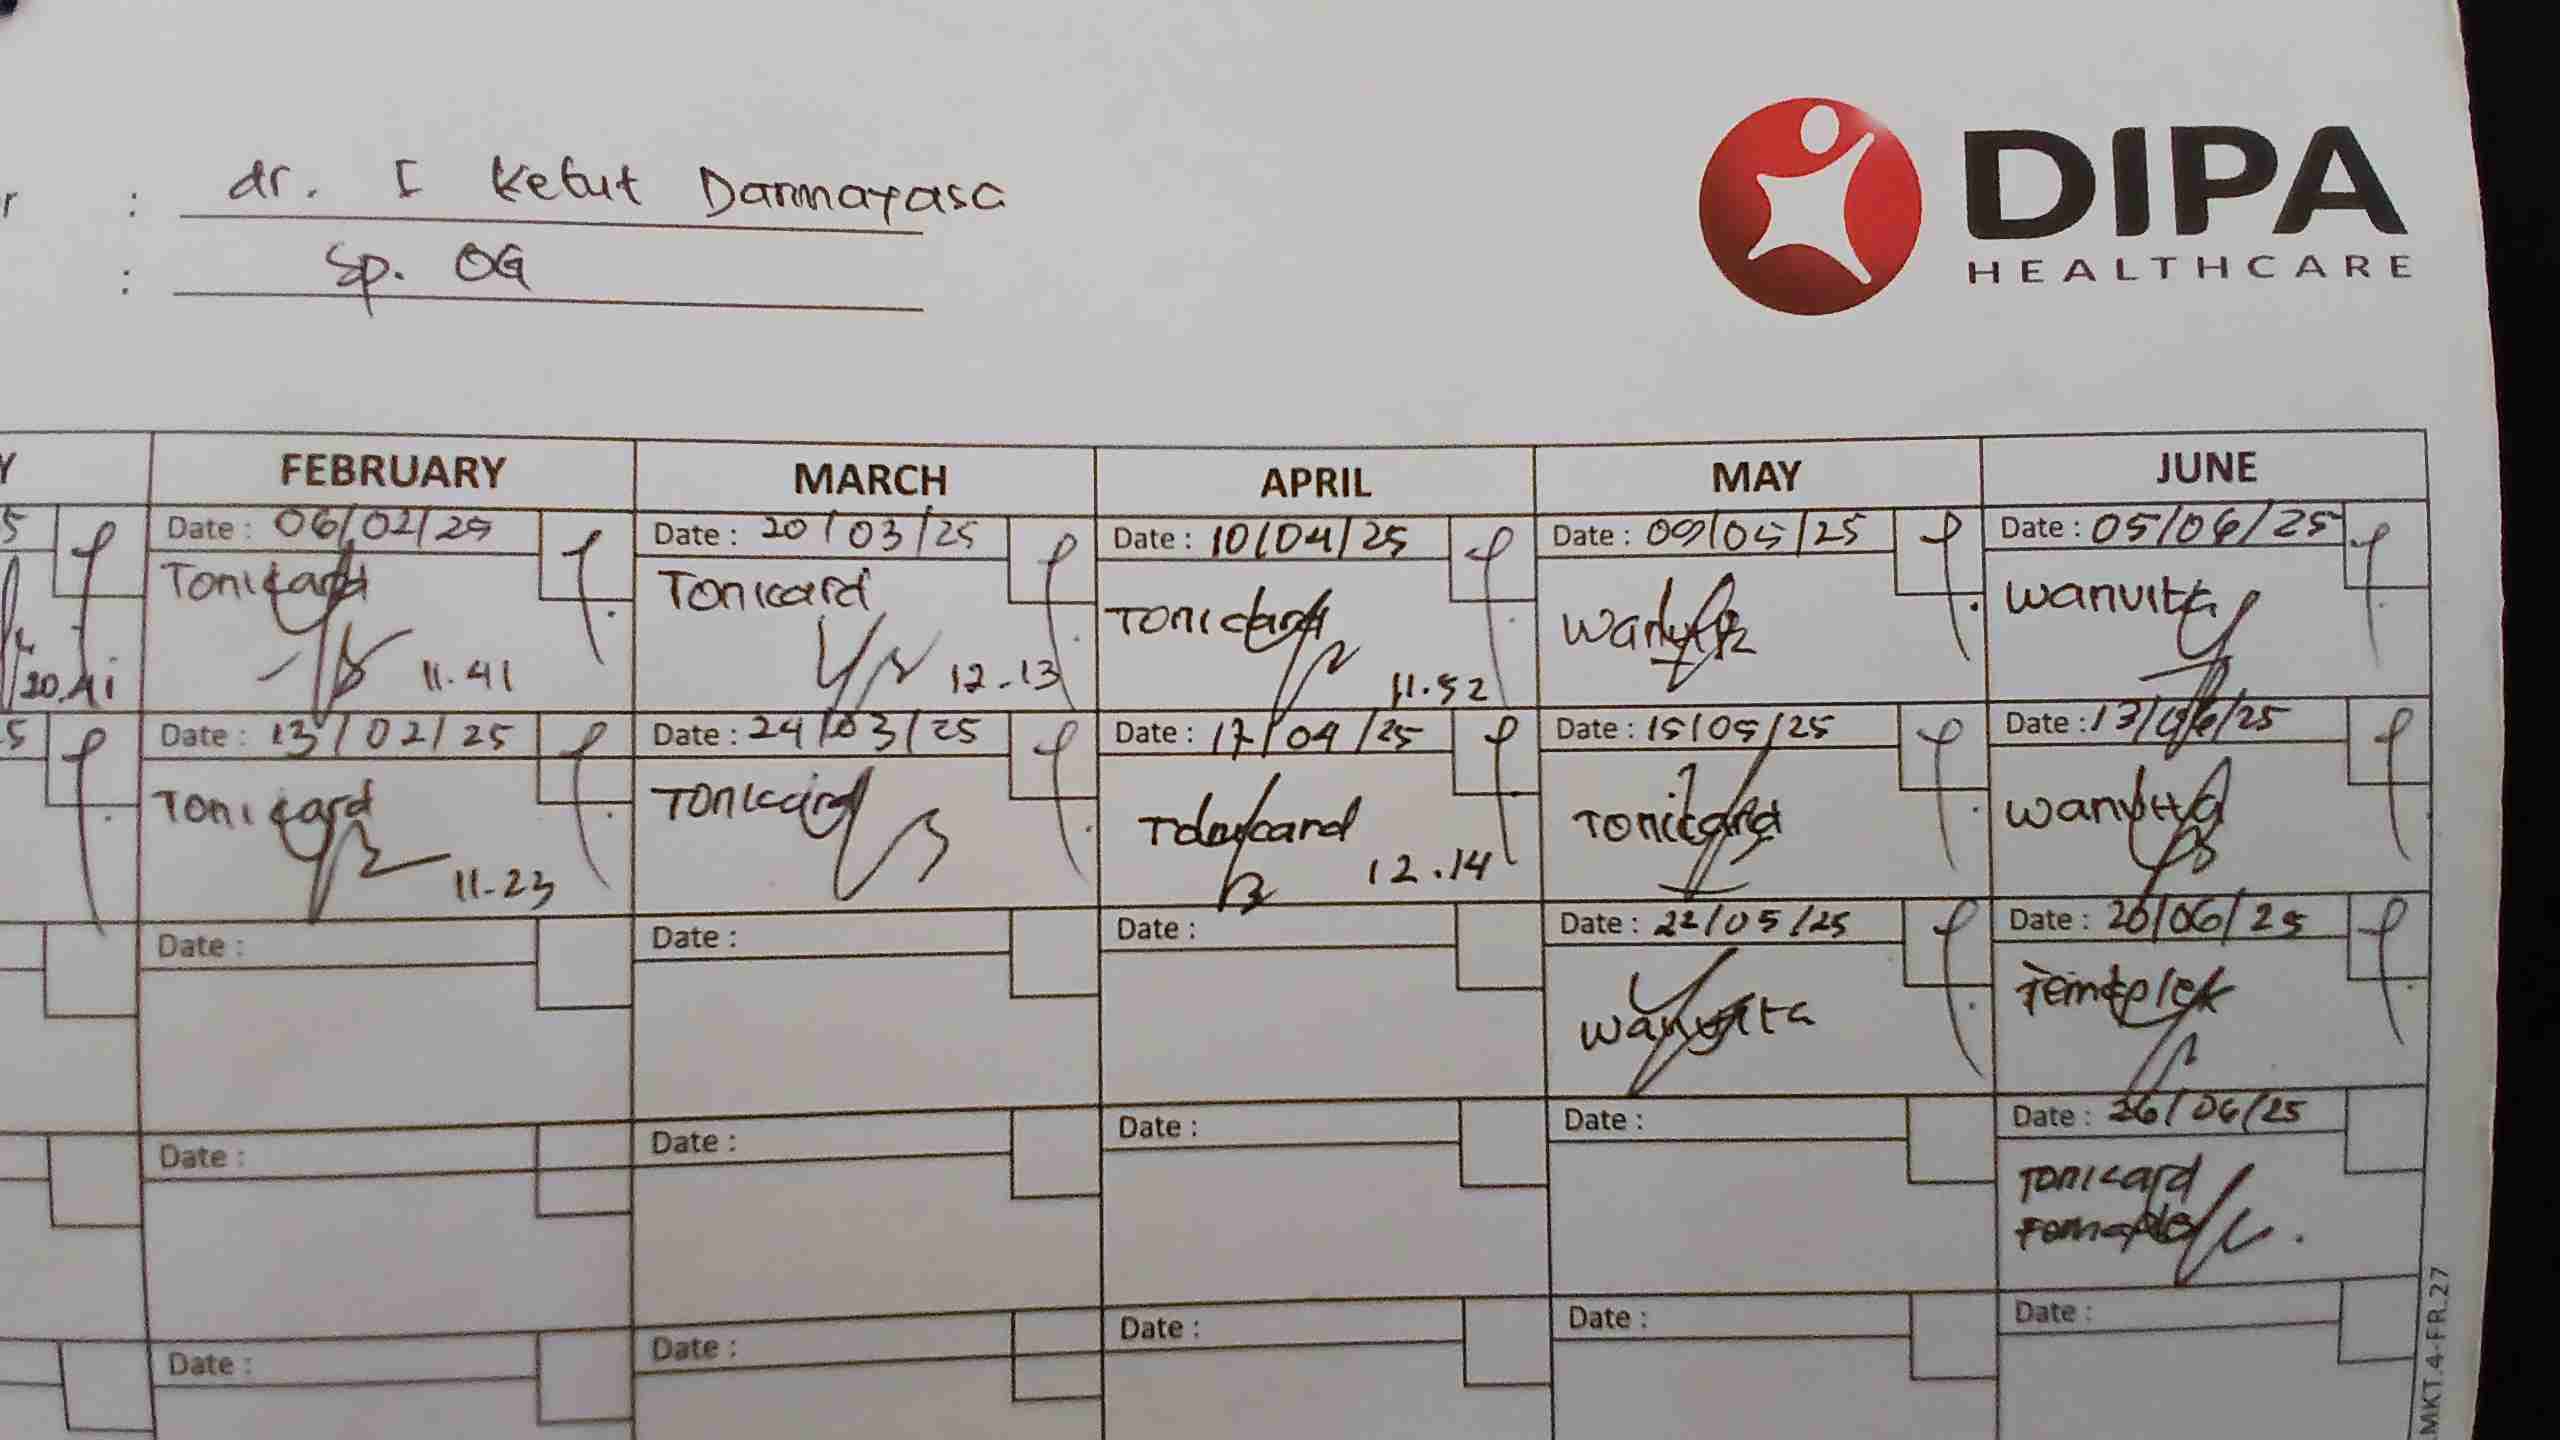 r : dr. I Ketut Darmayasa
: Sp. OG
DIPA
HEALTHCARE
Y FEBRUARY MARCH APRIL MAY JUNE
5 Date : 06/02/25 Date : 20/03/25 Date : 10/04/25 Date : 09/05/25 Date : 05/06/25
Tonicard Tonicard Tonicard Wanvita Wanvita
20.41 11.41 12.13 11.52
5 Date : 13/02/25 Date : 24/03/25 Date : 17/04/25 Date : 15/05/25 Date : 13/06/25
Tonicard Tonicard Tonicard Wanvita
11.23 12.14
Date : Date : Date : Date : 22/05/25 Date : 20/06/25
Wanvita
Date : Date : Date : Date : Date : 26/06/25
Tonicard
Date : Date : Date : Date : Date :
MKT.4-FR.27